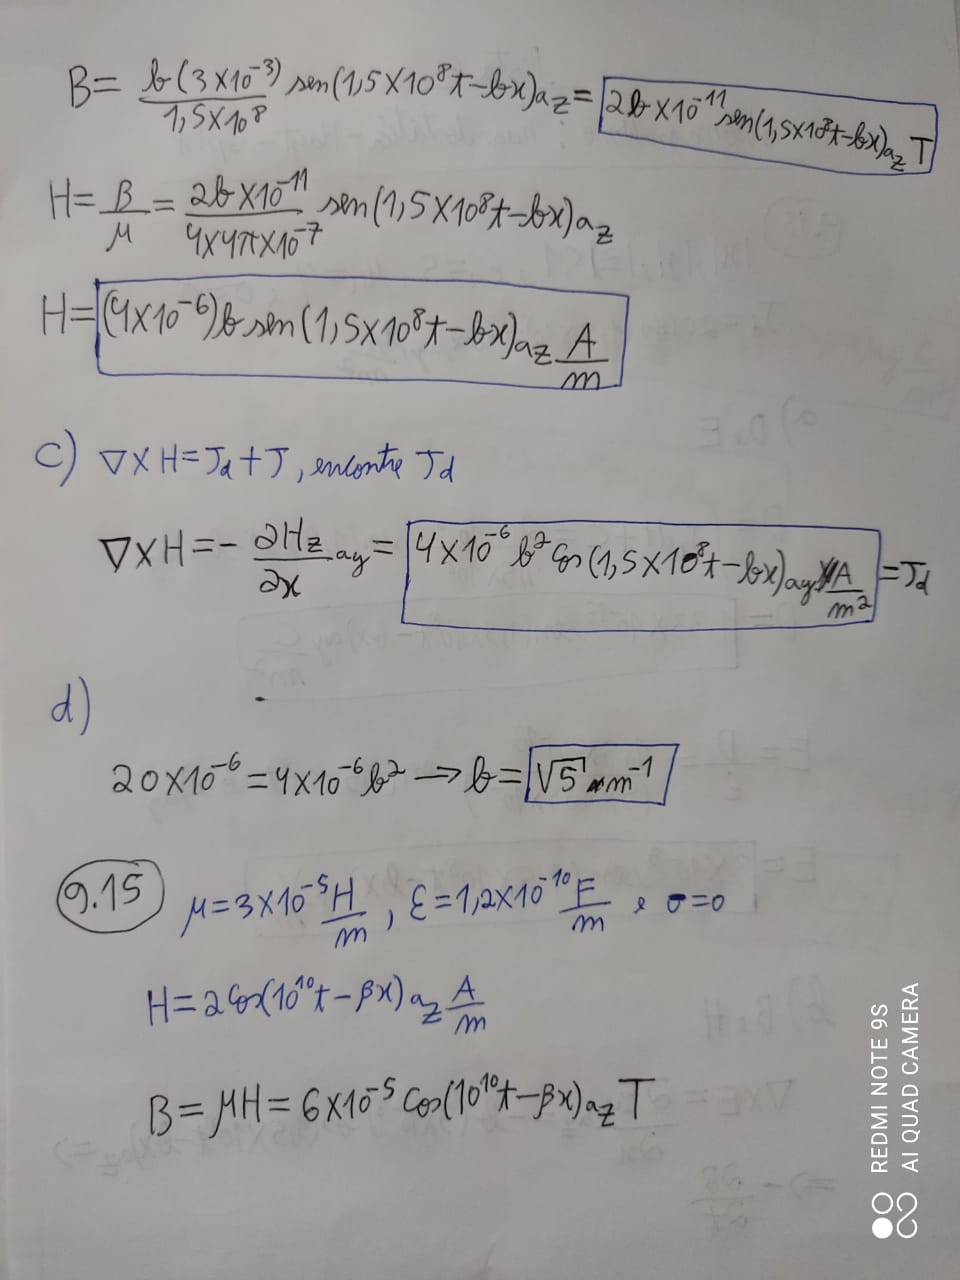 B = b(3×10⁻³)/1,5×10⁸ sen(1,5×10⁸t-bx)az = 2b×10⁻¹¹ sen(1,5×10⁸t-bx)az T
H = B/μ = 2b×10⁻¹¹/4×4π×10⁻⁷ sen(1,5×10⁸t-bx)az
H = (4×10⁻⁶)b sen(1,5×10⁸t-bx)az A/m
c) ∇×H = Jd + J, encontre Jd
∇×H = - ∂Hz/∂x ay = 4×10⁻⁶ b² cos(1,5×10⁸t-bx)ay A/m² = Jd
d)
20×10⁻⁶ = 4×10⁻⁶b² → b = √5 m⁻¹
9.15 μ = 3×10⁻⁵ H/m, ε = 1,2×10⁻¹⁰ F/m e σ=0
H = 2cos(10¹⁰t - βx)az A/m
B = μH = 6×10⁻⁵ cos(10¹⁰t-βx)az T
REDMI NOTE 9S
AI QUAD CAMERA